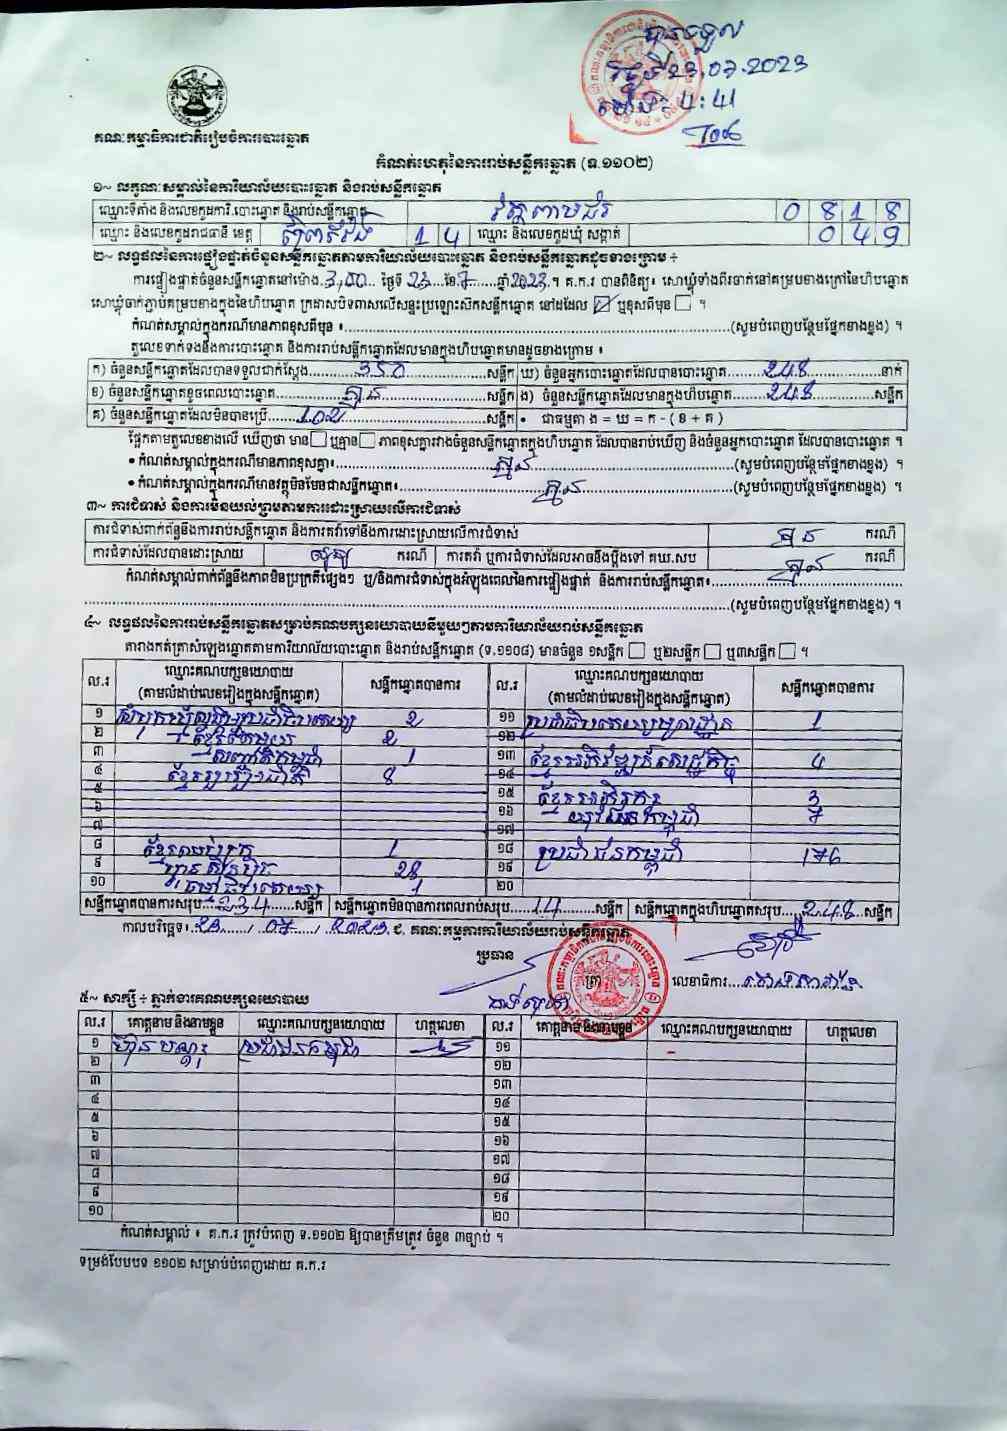 បានទទួល
ថ្ងៃទី 23.07.2023
ម៉ោង: 4:41
គណៈកម្មាធិការជាតិរៀបចំការបោះឆ្នោត
កំណត់ហេតុនៃការរាប់សន្លឹកឆ្នោត (ទ.១១០២)
១~ លក្ខណៈសម្គាល់នៃការិយាល័យបោះឆ្នោត និងរាប់សន្លឹកឆ្នោត
ឈ្មោះទីតាំង និងលេខកូដការិ.បោះឆ្នោត និងរាប់សន្លឹកឆ្នោត 0 8 1 8
ឈ្មោះ និងលេខកូដរាជធានី ខេត្ត ព្រៃវែង 1 4 ឈ្មោះ និងលេខកូដឃុំ សង្កាត់ 0 4 9
២~ លទ្ធផលនៃការផ្ទៀងផ្ទាត់ចំនួនសន្លឹកឆ្នោតតាមការិយាល័យបោះឆ្នោត និងរាប់សន្លឹកឆ្នោតដូចខាងក្រោម ÷
ការផ្ទៀងផ្ទាត់ចំនួនសន្លឹកឆ្នោតនៅម៉ោង.3,00.. ថ្ងៃទី 23 ខែ 7 ឆ្នាំ 2023។ គ.ក.រ បានពិនិត្យ៖ សោឃ្លុំទាំងពីរចាក់នៅគម្របខាងក្រៅនៃហិបឆ្នោត
សោឃ្លុំចាក់ភ្ជាប់គម្របខាងក្នុងនៃហិបឆ្នោត ក្រដាសបិទពាសលើសន្ទះប្រឡោះសឹកសន្លឹកឆ្នោត នៅដដែល ☑ ឬខុសពីមុន ☐ ។
កំណត់សម្គាល់ក្នុងករណីមានភាពខុសពីមុន ៖ (សូមបំពេញបន្ថែមផ្នែកខាងខ្នង) ។
តួលេខទាក់ទងនឹងការបោះឆ្នោត និងការរាប់សន្លឹកឆ្នោតដែលមានក្នុងហិបឆ្នោតមានដូចខាងក្រោម ៖
ក) ចំនួនសន្លឹកឆ្នោតដែលបានទទួលជាក់ស្តែង 350 សន្លឹក ឃ) ចំនួនអ្នកបោះឆ្នោតដែលបានបោះឆ្នោត 248 នាក់
ខ) ចំនួនសន្លឹកឆ្នោតខូចពេលបោះឆ្នោត គ្មាន សន្លឹក ង) ចំនួនសន្លឹកឆ្នោតដែលមានក្នុងហិបឆ្នោត 248 សន្លឹក
គ) ចំនួនសន្លឹកឆ្នោតដែលមិនបានប្រើ 102 សន្លឹក • ជាធម្មតា ង = ឃ = ក - ( ខ + គ )
ផ្អែកតាមតួលេខខាងលើ ឃើញថា មាន ☐ ឬគ្មាន ☐ ភាពខុសគ្នារវាងចំនួនសន្លឹកឆ្នោតក្នុងហិបឆ្នោត ដែលបានរាប់ឃើញ និងចំនួនអ្នកបោះឆ្នោត ដែលបានបោះឆ្នោត ។
• កំណត់សម្គាល់ក្នុងករណីមានភាពខុសគ្នា៖ គ្មាន (សូមបំពេញបន្ថែមផ្នែកខាងខ្នង) ។
• កំណត់សម្គាល់ក្នុងករណីមានវត្ថុមិនមែនជាសន្លឹកឆ្នោត៖ គ្មាន (សូមបំពេញបន្ថែមផ្នែកខាងខ្នង) ។
៣~ ការជំទាស់ និងការមិនយល់ព្រមតាមការដោះស្រាយលើការជំទាស់
ការជំទាស់ពាក់ព័ន្ធនឹងការរាប់សន្លឹកឆ្នោត និងការតវ៉ាទៅនឹងការដោះស្រាយលើការជំទាស់ គ្មាន ករណី
ការជំទាស់ដែលបានដោះស្រាយ សូន្យ ករណី ការតវ៉ា ឬការជំទាស់ដែលអាចនឹងប្តឹងទៅ គឃ.សប គ្មាន ករណី
កំណត់សម្គាល់ពាក់ព័ន្ធនឹងភាពមិនប្រក្រតីផ្សេងៗ ឬ/និងការជំទាស់ក្នុងអំឡុងពេលនៃការផ្ទៀងផ្ទាត់ និងការរាប់សន្លឹកឆ្នោត៖
(សូមបំពេញបន្ថែមផ្នែកខាងខ្នង) ។
៤~ លទ្ធផលនៃការរាប់សន្លឹកឆ្នោតសម្រាប់គណបក្សនយោបាយនីមួយៗតាមការិយាល័យរាប់សន្លឹកឆ្នោត
តារាងកត់ត្រាសំឡេងឆ្នោតតាមការិយាល័យបោះឆ្នោត និងរាប់សន្លឹកឆ្នោត (ទ.១១០៨) មានចំនួន ១សន្លឹក ☐ ឬ២សន្លឹក ☐ ឬ៣សន្លឹក ☐ ។
ល.រ ឈ្មោះគណបក្សនយោបាយ (តាមលំដាប់លេខរៀងក្នុងសន្លឹកឆ្នោត) សន្លឹកឆ្នោតបានការ ល.រ ឈ្មោះគណបក្សនយោបាយ (តាមលំដាប់លេខរៀងក្នុងសន្លឹកឆ្នោត) សន្លឹកឆ្នោតបានការ
១ 2 ១១ ប្រជាធិបតេយ្យមូលដ្ឋាន 1
២ ខ្មែរតែមួយ 2 ១២
៣ សញ្ជាតិកម្ពុជា 1 ១៣ ខ្មែរអភិវឌ្ឍន៍សេដ្ឋកិច្ច 4
៤ ខ្មែររួបរួមជាតិ 8 ១៤
៥ ១៥ ខ្មែរអភិរក្ស 3
៦ ១៦ យុវជនកម្ពុជា 7
៧ ១៧
៨ ខ្មែរឈប់ក្រ 1 ១៨ ប្រជាជនកម្ពុជា 176
៩ ហ៊្វុនស៊ិនប៉ិច 28 ១៩
១០ 1 ២០
សន្លឹកឆ្នោតបានការសរុប 234 សន្លឹក សន្លឹកឆ្នោតមិនបានការពេលរាប់សរុប 14 សន្លឹក សន្លឹកឆ្នោតក្នុងហិបឆ្នោតសរុប 248 សន្លឹក
កាលបរិច្ឆេទ៖ 23 / 07 / 2023 ជ. គណៈកម្មការការិយាល័យរាប់សន្លឹកឆ្នោត
ប្រធាន ត្រា លេខាធិការ
៥~ សាក្សី ÷ ភ្នាក់ងារគណបក្សនយោបាយ
ល.រ គោត្តនាម និងនាមខ្លួន ឈ្មោះគណបក្សនយោបាយ ហត្ថលេខា ល.រ គោត្តនាម និងនាមខ្លួន ឈ្មោះគណបក្សនយោបាយ ហត្ថលេខា
១ ប្រជាជនកម្ពុជា ១១
២ ១២
៣ ១៣
៤ ១៤
៥ ១៥
៦ ១៦
៧ ១៧
៨ ១៨
៩ ១៩
១០ ២០
កំណត់សម្គាល់ ៖ គ.ក.រ ត្រូវបំពេញ ទ.១១០២ ឱ្យបានត្រឹមត្រូវ ចំនួន ៣ច្បាប់ ។
ទម្រង់បែបបទ ១១០២ សម្រាប់បំពេញដោយ គ.ក.រ